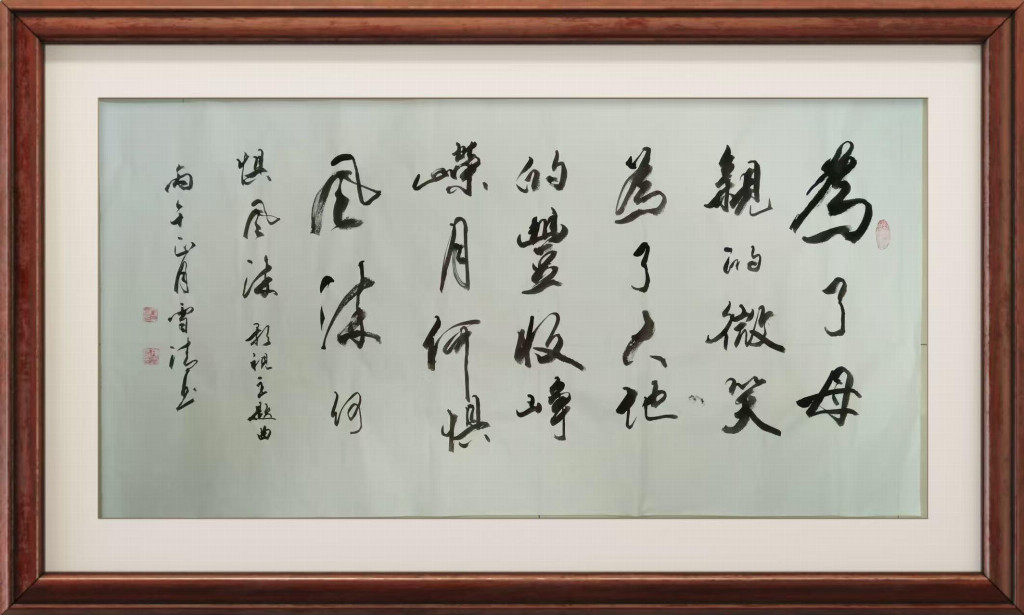 為了母
親的微笑
為了大地
的豐收崢
嶸月何懼
風流何
懼風流影視主題曲
丙午正月雪清書